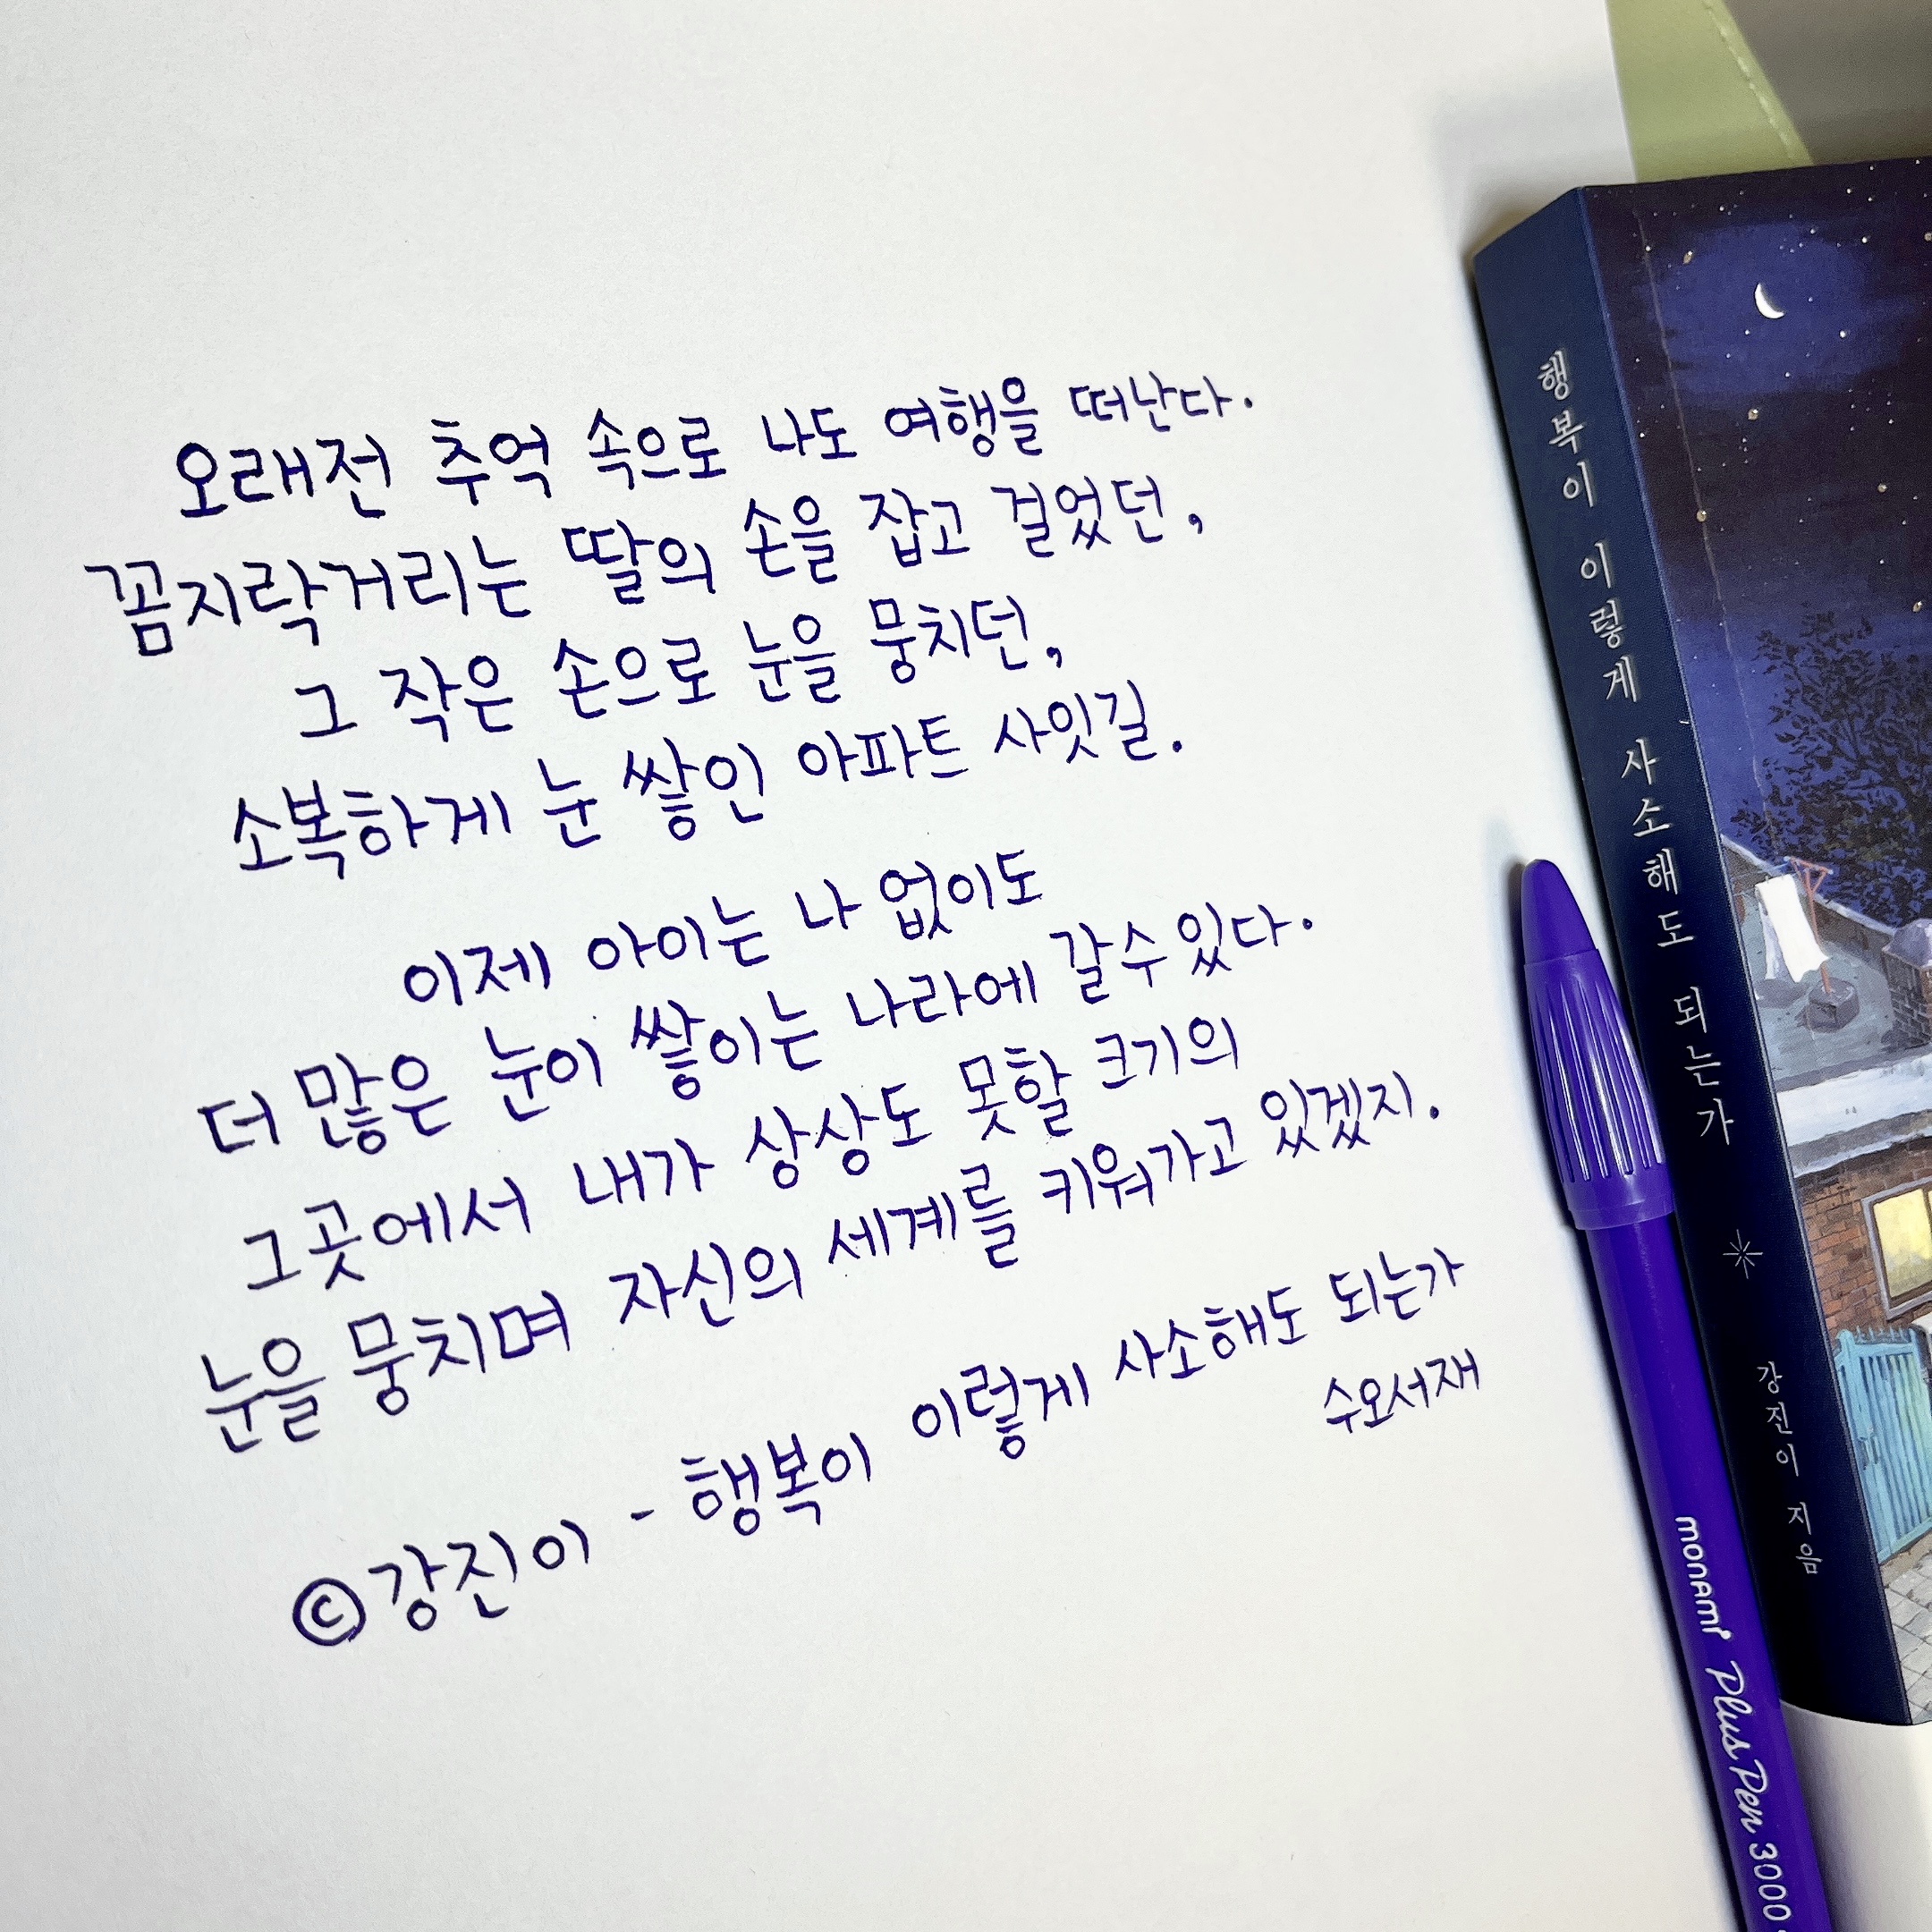 오래전 추억 속으로 나도 여행을 떠난다.
꼼지락거리는 딸의 손을 잡고 걸었던,
그 작은 손으로 눈을 뭉치던,
소복하게 눈 쌓인 아파트 사잇길.
이제 아이는 나 없이도
더 많은 눈이 쌓이는 나라에 갈 수 있다.
그곳에서 내가 상상도 못할 크기의
눈을 뭉치며 자신의 세계를 키워가고 있겠지.
©강진이 - 행복이 이렇게 사소해도 되는가
수오서재
행복이 이렇게 사소해도 되는가 강진이 지음
monami Plus Pen 3000